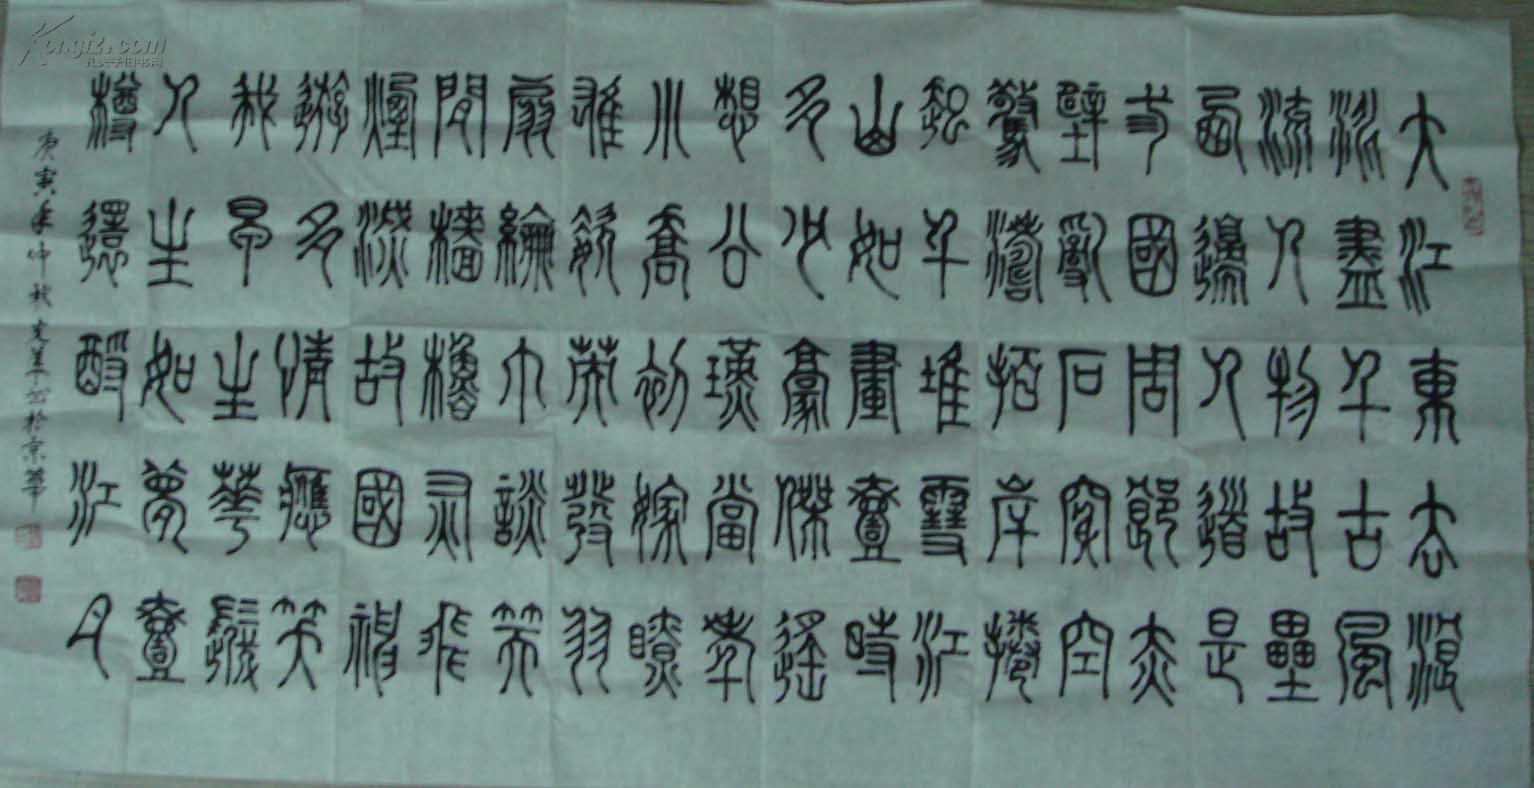 大江東去浪
淘盡千古風
流人物故壘
西邊人道是
三國周郎赤
壁亂石穿空
驚濤拍岸捲
起千堆雪江
山如畫壹時
多少豪傑遙
想公瑾當年
小喬初嫁瞭
雄姿英發羽
扇綸巾談笑
間檣櫓灰飛
煙滅故國神
遊多情應笑
我早生華髮
人生如夢壹
樽還酹江月
庚寅年仲秋 於京華
Kongfz.com
孔夫子旧书网